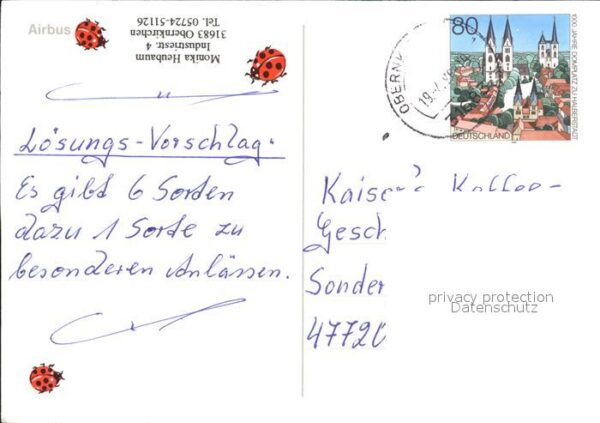 Airbus
Monika Heubaum
Industriestr. 4
31683 Obernkirchen
Tel. 05724-51126
Lösungs-Vorschlag:
Es gibt 6 Sorten
dazu 1 Sorte zu
besonderen Anlässen.
80
DEUTSCHLAND
1000 JAHRE DOMPLATZ ZU HALBERSTADT
OBERNK
19.
Kaiser's Kaffee-
Gesch
Sonder
4772
privacy protection
Datenschutz